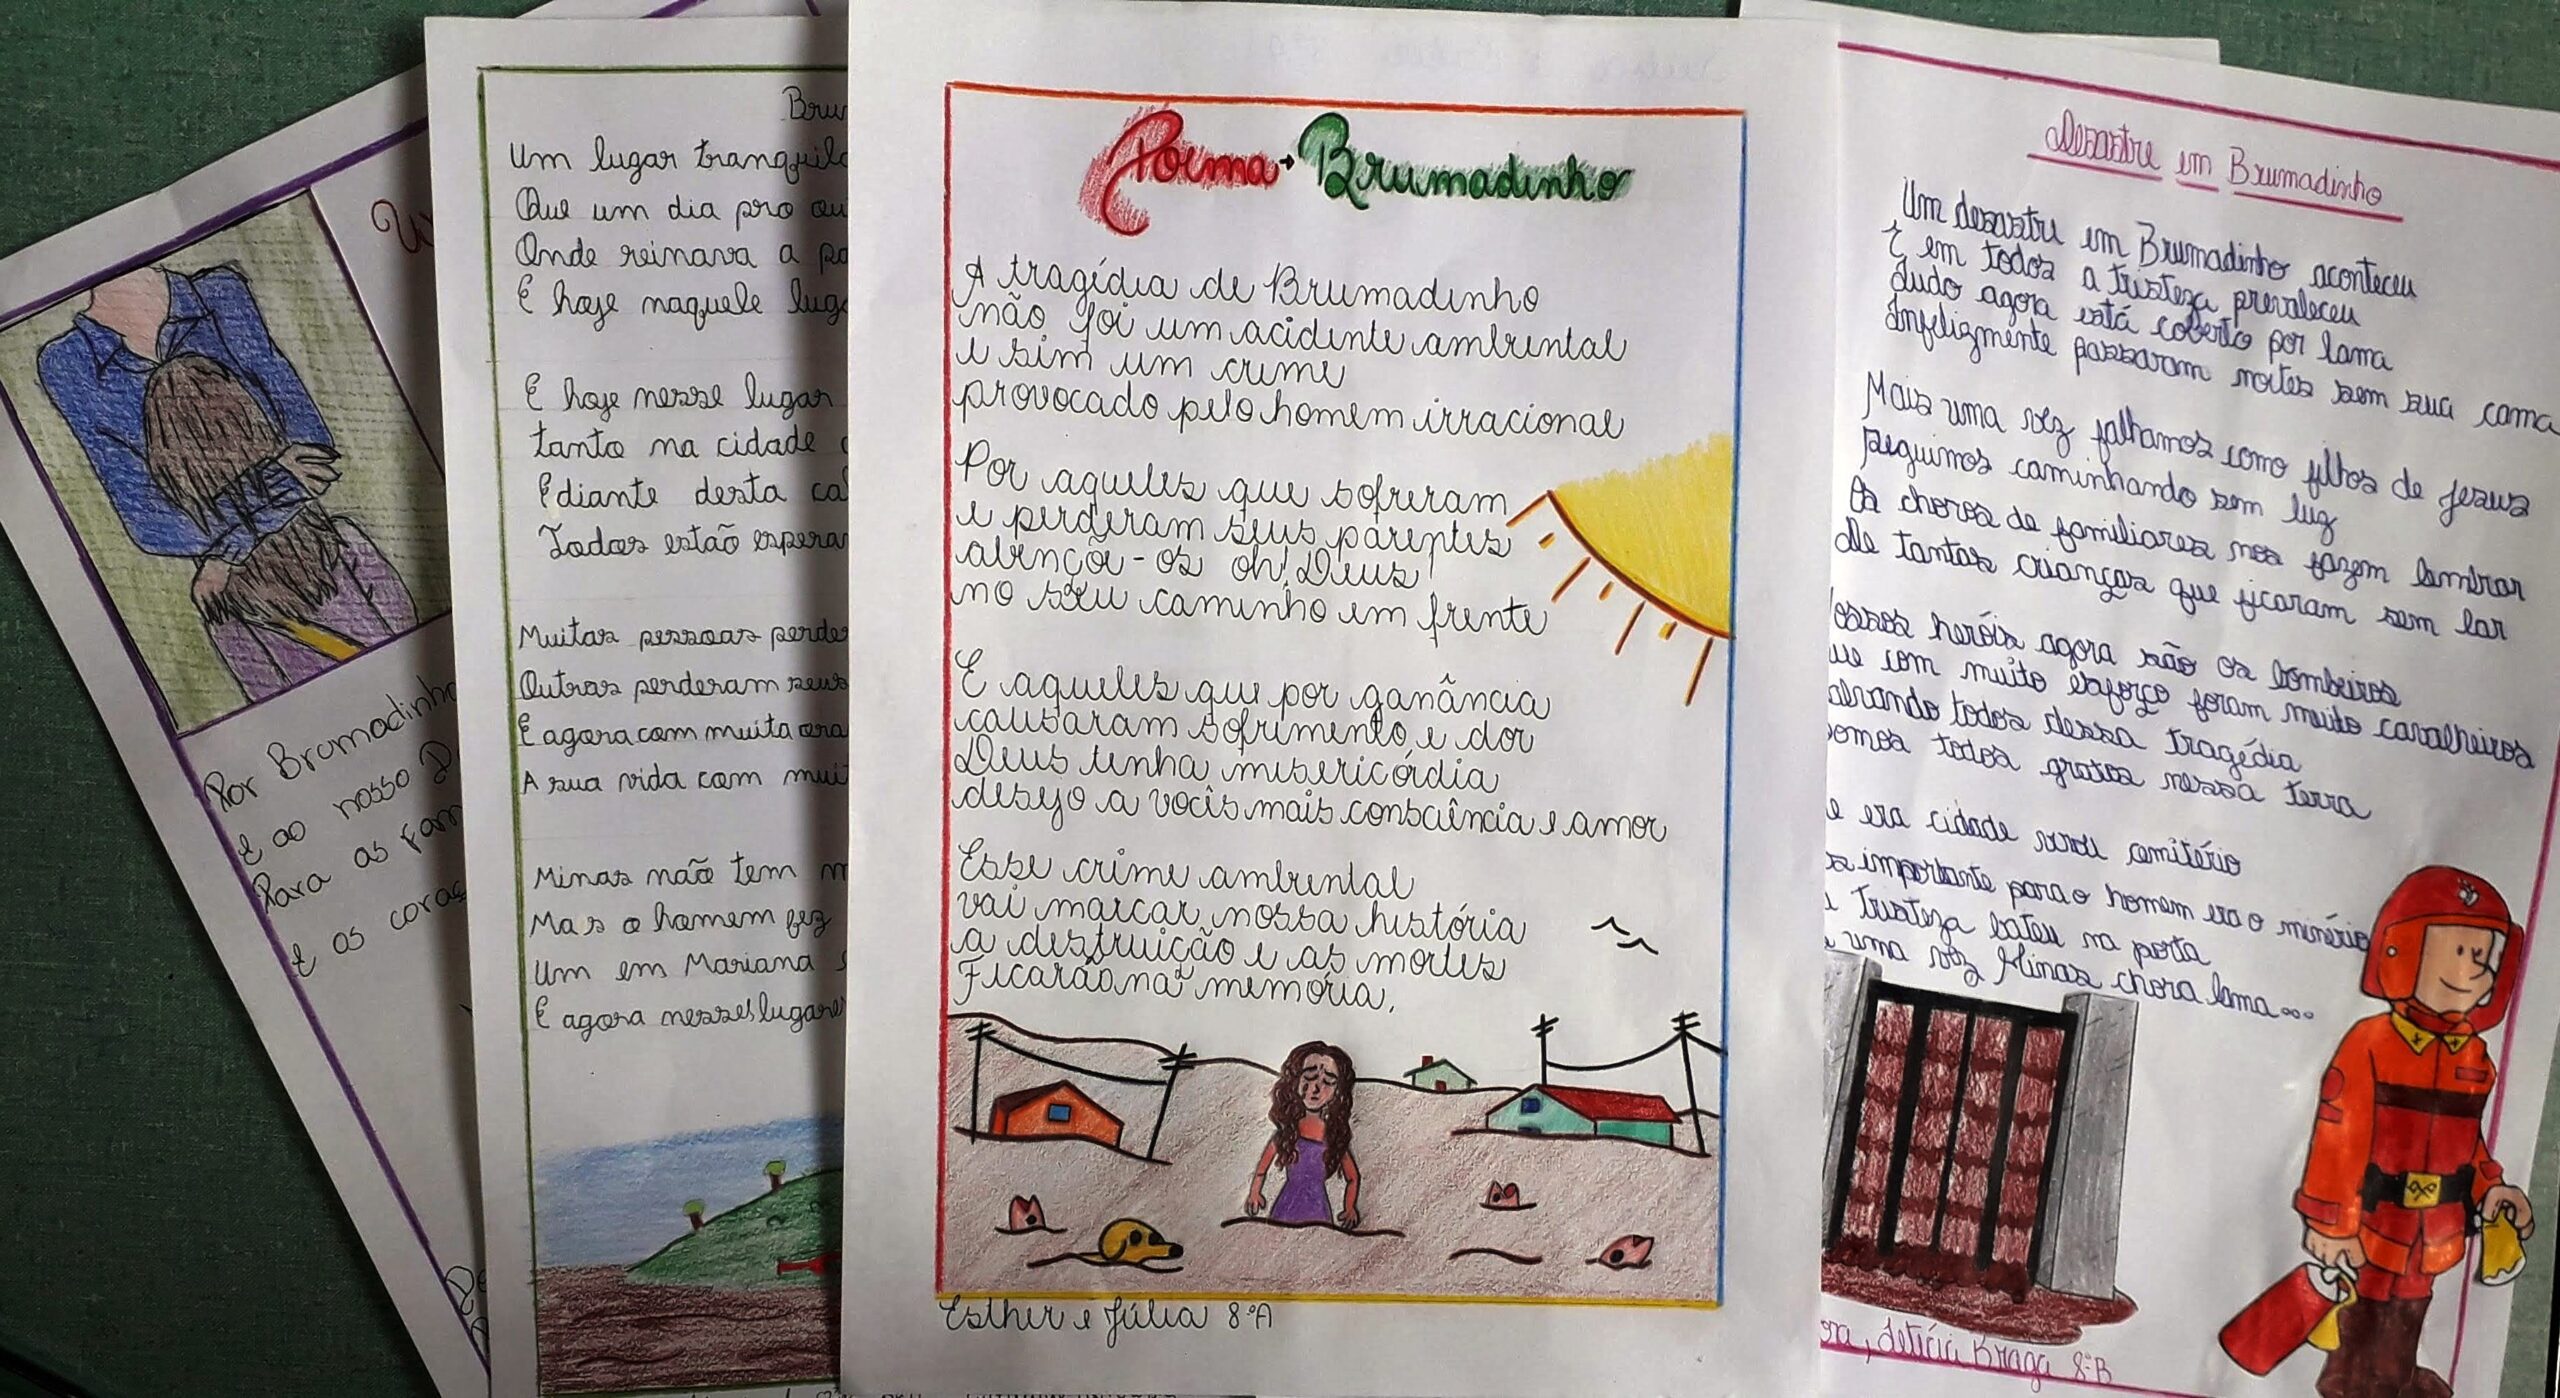 Por Brumadinho
E ao nosso D
Para as fam
E os coraç
Bru
Um lugar tranquilo
Que um dia pro ou
Onde reinava a pa
E hoje naquele luga
E hoje nesse lugar
tanto na cidade
E diante desta ca
Todos estão esperan
Muitas pessoas perde
Outras perderam seus
E agora com muita ora
A sua vida com mui
Minas não tem m
Mas o homem fez
Um em Mariana e
E agora nesses lugares
Poema Brumadinho
A tragédia de Brumadinho
não foi um acidente ambiental
e sim um crime
provocado pelo homem irracional
Por aqueles que sofreram
e perderam seus parentes
abençõe-os oh! Deus
no seu caminho em frente
E aqueles que por ganância
causaram sofrimento e dor
Deus tenha misericórdia
desejo a vocês mais consciência e amor
Esse crime ambiental
vai marcar nossa história
a destruição e as mortes
Ficarão na memória.
Esther e Júlia 8ºA
Desastre em Brumadinho
Um desastre em Brumadinho aconteceu
E em todos a tristeza prevaleceu
Tudo agora está coberto por lama
Infelizmente passaram noites sem sua cama
Mais uma vez falhamos como filhos de Jesus
seguimos caminhando sem luz
Os choros de familiares nos fazem lembrar
De tantas crianças que ficaram sem lar
ossos heróis agora são os bombeiros
ue com muito esforço foram muito cavalheiros
alvando todos dessa tragédia
omos todos gratos nessa terra
e era cidade virou cemitério
is importante para o homem era o minério
a tristeza bateu na porta
uma vez Minas chora lama...
ora, Letícia Braga 8ºB